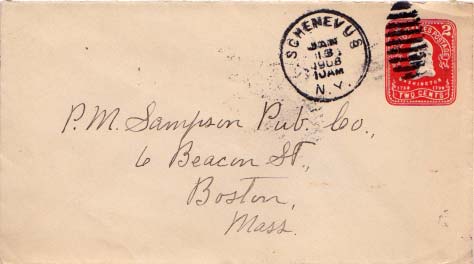 SCHENEVUS
JAN
1908
10AM
N.Y.
WASHINGTON
TWO CENTS
P.M. Sampson Pub. Co.,
6 Beacon St.,
Boston,
Mass.